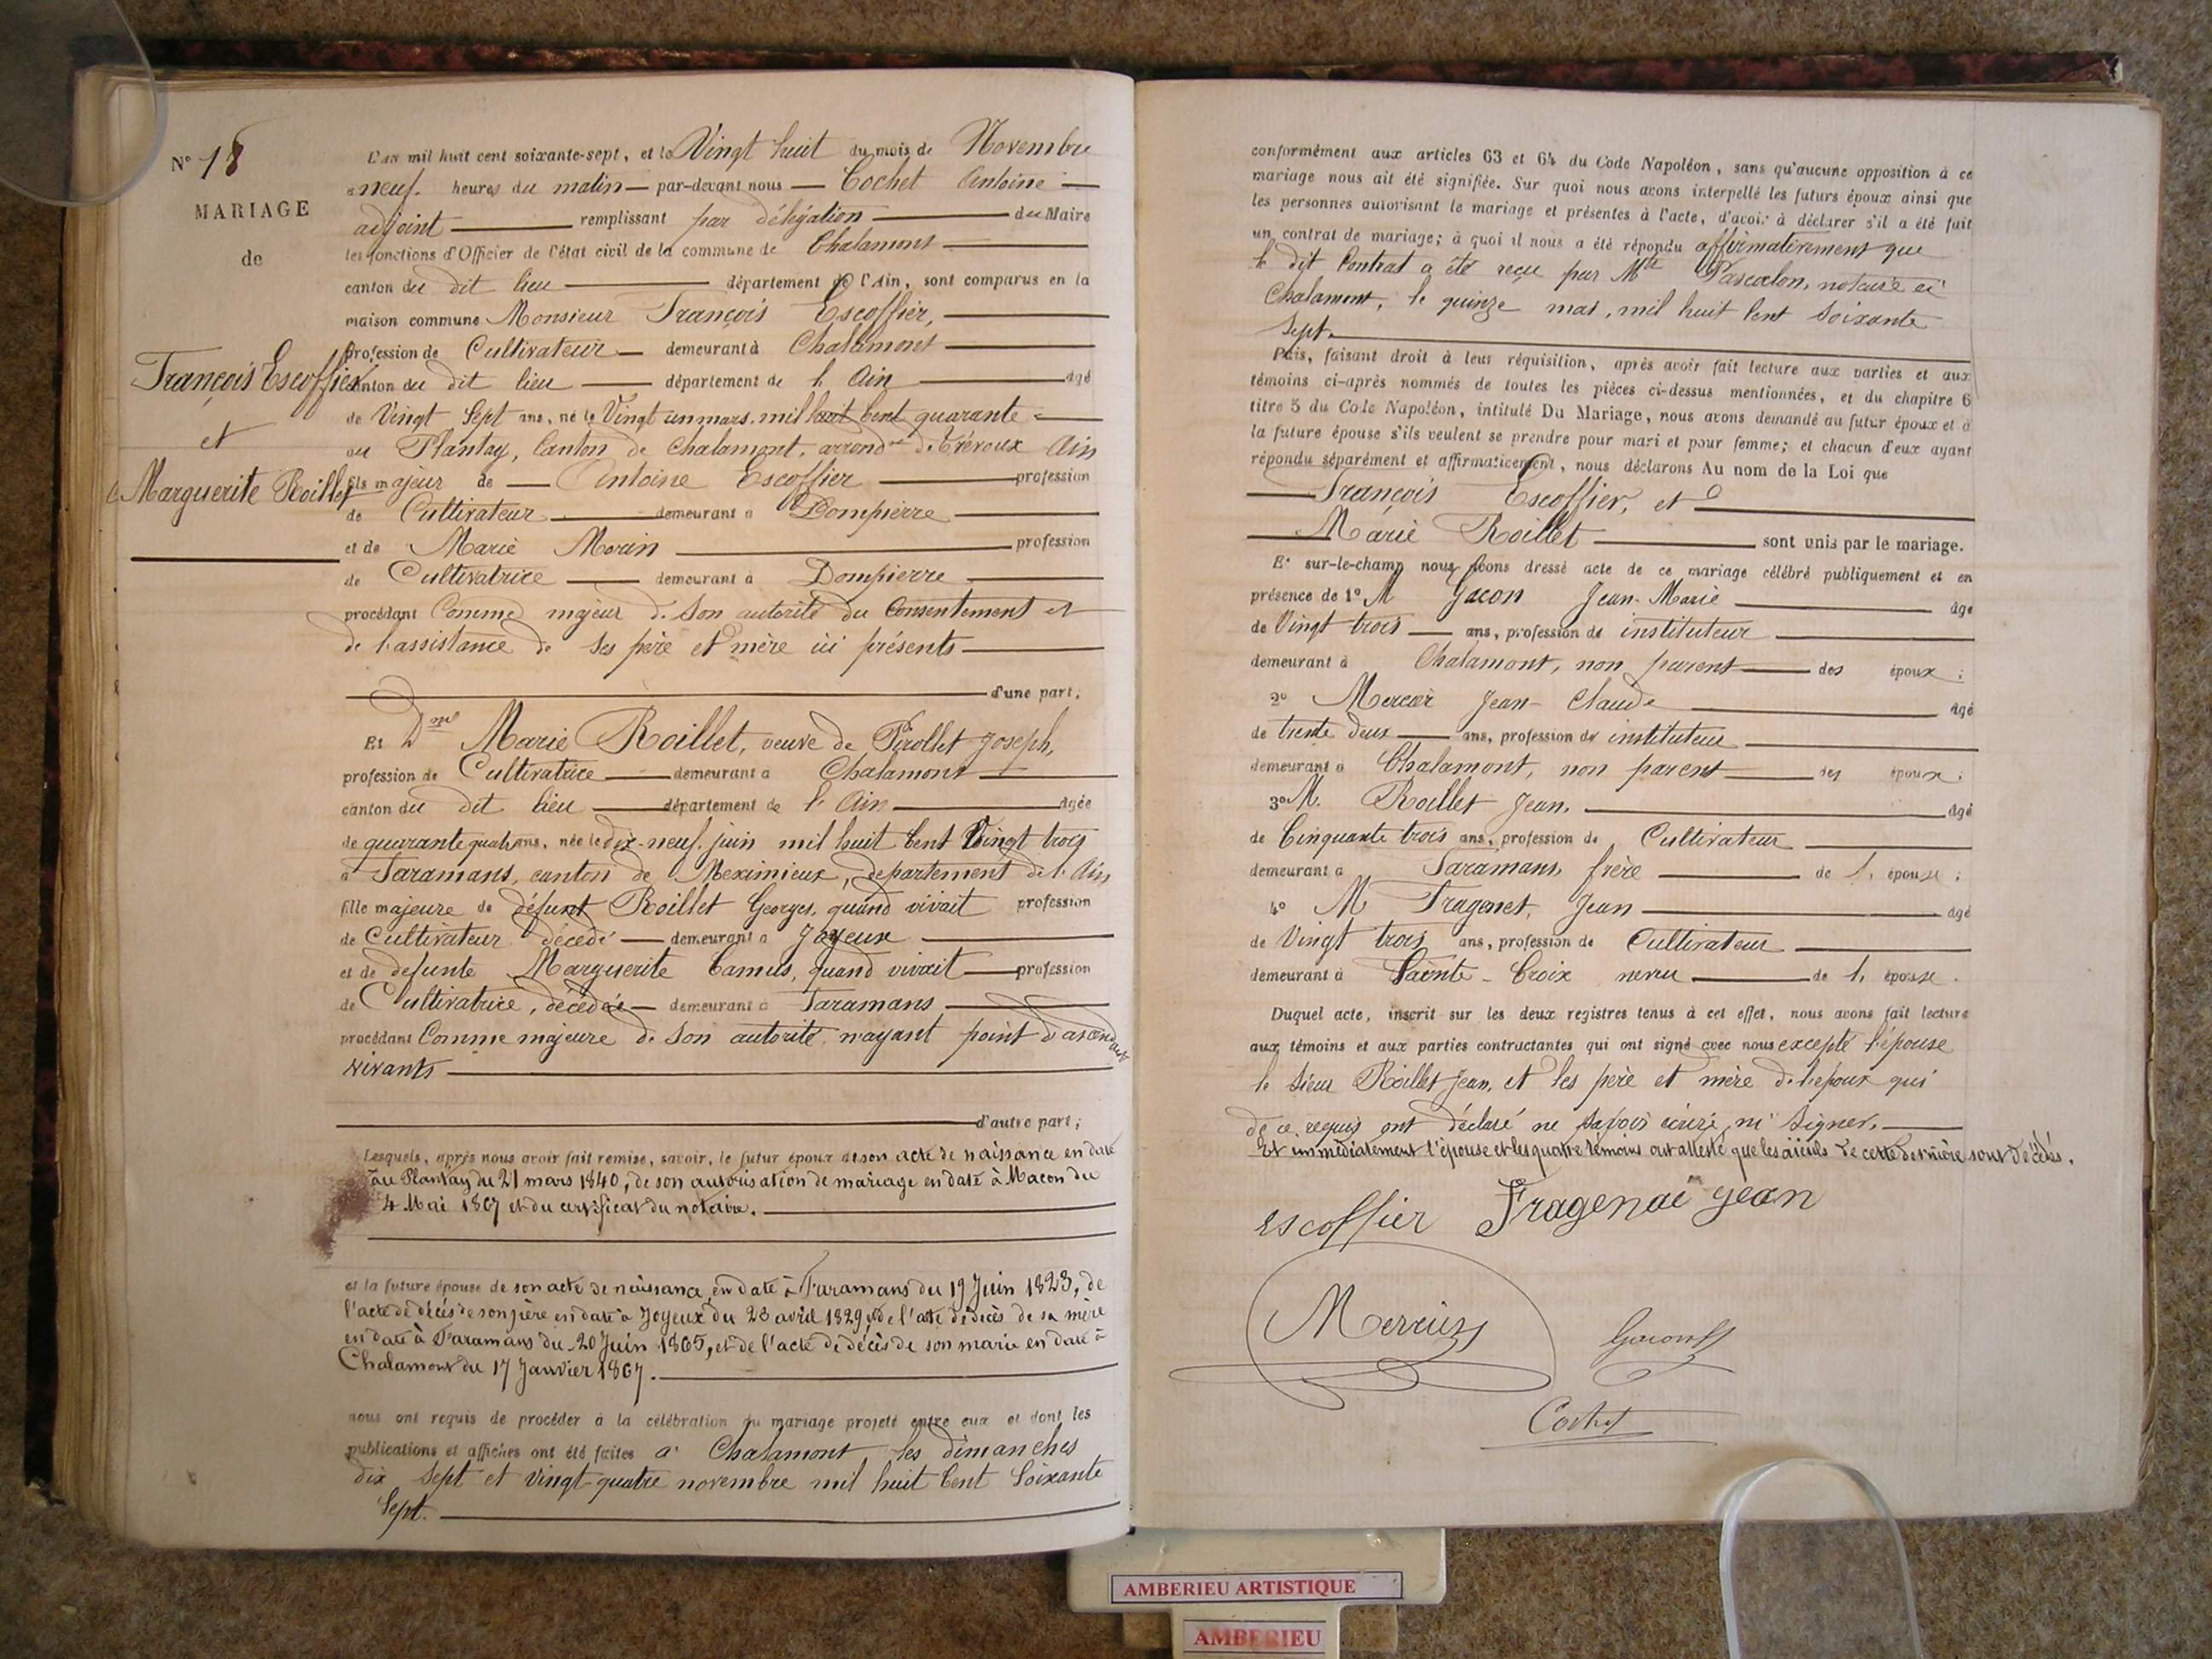 N° 18
MARIAGE
de
François Escoffier
et
Marguerite Roillet
L'an mil huit cent soixante-sept, et le Vingt huit du mois de Novembre
à neuf heures du matin par-devant nous Cochet Antoine
adjoint remplissant par délégation du Maire
les fonctions d'Officier de l'état civil de la commune de Chalamont
canton du dit lieu département de l'Ain, sont comparus en la
maison commune Monsieur François Escoffier,
profession de Cultivateur demeurant à Chalamont
canton du dit lieu département de l'Ain agé
de Vingt Sept ans, né le Vingt un mars, mil huit Cent quarante
au Plantay, Canton de Chalamont, arrondt de Trévoux Ain
fils majeur de Antoine Escoffier profession
de Cultivateur demeurant à Dompierre
et de Marie Morin profession
de Cultivatrice demeurant à Dompierre
procédant Comme majeur de Son autorité du Consentement et
de l'assistance de Ses père et mère ici présents
d'une part,
Et Dme Marie Roillet, veuve de Pirollet Joseph,
profession de Cultivatrice demeurant à Chalamont
canton du dit lieu département de l'Ain agée
de quarante quatre ans, née le dix-neuf juin mil huit Cent Vingt trois
à Faramans, canton de Meximieux, département de l'Ain
fille majeure de défunt Roillet Georges, quand vivait profession
de Cultivateur décédé demeurant à Joyeux
et de défunte Marguerite Camus, quand vivait profession
de Cultivatrice, décédée demeurant à Faramans
procédant Comme majeure de Son autorité n'ayant point d'ascendants
vivants
d'autre part;
Lesquels, après nous avoir fait remise, savoir, le futur époux de son acte de naissance en date
au Plantay du 21 mars 1840, de son autorisation de mariage en date à Macon du
4 Mai 1867 et du certificat du notaire.
et la future épouse de son acte de naissance en date à Faramans du 19 Juin 1823, de
l'acte de décès de son père en date à Joyeux du 23 avril 1829, de l'acte de décès de sa mère
en date à Faramans du 20 Juin 1865, et de l'acte de décès de son marie en date à
Chalamont du 17 Janvier 1867.
nous ont requis de procéder à la célébration du mariage projeté entre eux et dont les
publications et affiches ont été faites à Chalamont les dimanches
dix Sept et vingt-quatre novembre mil huit Cent Soixante
Sept.
conformément aux articles 63 et 64 du Code Napoléon, sans qu'aucune opposition à ce
mariage nous ait été signifiée. Sur quoi nous avons interpellé les futurs époux ainsi que
les personnes autorisant le mariage et présentes à l'acte, d'avoir à déclarer s'il a été fait
un contrat de mariage; à quoi il nous a été répondu affirmativement que
le dit Contrat a été reçu par Mtre Pascalon, notaire à
Chalamont, le quinze mai, mil huit Cent Soixante
Sept.
Puis, faisant droit à leur réquisition, après avoir fait lecture aux parties et aux
témoins ci-après nommés de toutes les pièces ci-dessus mentionnées, et du chapitre 6
titre 5 du Code Napoléon, intitulé Du Mariage, nous avons demandé au futur époux et à
la future épouse s'ils veulent se prendre pour mari et pour femme; et chacun d'eux ayant
répondu séparément et affirmativement, nous déclarons Au nom de la Loi que
François Escoffier, et
Marie Roillet sont unis par le mariage.
Et sur-le-champ nous avons dressé acte de ce mariage célébré publiquement et en
présence de 1° M Gacon Jean-Marie âgé
de Vingt trois ans, profession de instituteur
demeurant à Chalamont, non parent des époux;
2° Mercier Jean-Claude agé
de trente deux ans, profession de instituteur
demeurant à Chalamont, non parent des époux;
3° M. Roillet Jean, agé
de Cinquante trois ans, profession de Cultivateur
demeurant à Faramans, frère de l'épouse;
4° M Fragenet, Jean agé
de Vingt trois ans, profession de Cultivateur
demeurant à Sainte-Croix neveu de l'épouse.
Duquel acte, inscrit sur les deux registres tenus à cet effet, nous avons fait lecture
aux témoins et aux parties contractantes qui ont signé avec nous excepté l'épouse
le Sieur Roillet Jean, et les père et mère de l'époux qui
de ce requis ont déclaré ne savoir écrire ni Signer.
Et immédiatement l'épouse et les quatre témoins ont attesté que les aïeuls de cette dernière sont décédés.
Escoffier Fragenai jean
Mercier Gacon
Cochet
AMBERIEU ARTISTIQUE
AMBERIEU